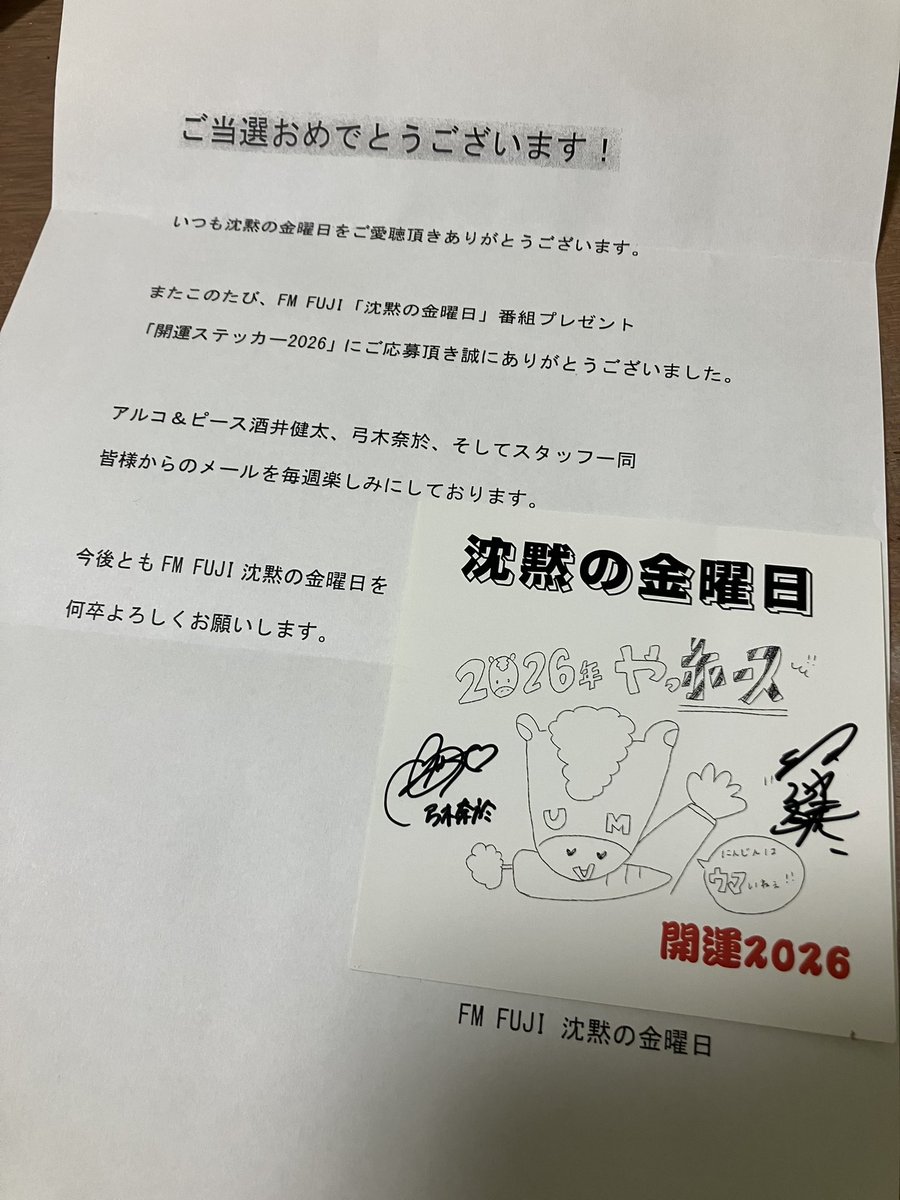 ご当選おめでとうございます！
いつも沈黙の金曜日をご愛聴頂きありがとうございます。
またこのたび、FM FUJI「沈黙の金曜日」番組プレゼント
「開運ステッカー2026」にご応募頂き誠にありがとうございました。
アルコ＆ピース酒井健太、弓木奈於、そしてスタッフ一同
皆様からのメールを毎週楽しみにしております。
今後ともFM FUJI 沈黙の金曜日を
何卒よろしくお願いします。
沈黙の金曜日
2026年 やっホース
弓木奈於
U M
にんじんは
ウマいねぇ!!
開運2026
FM FUJI 沈黙の金曜日